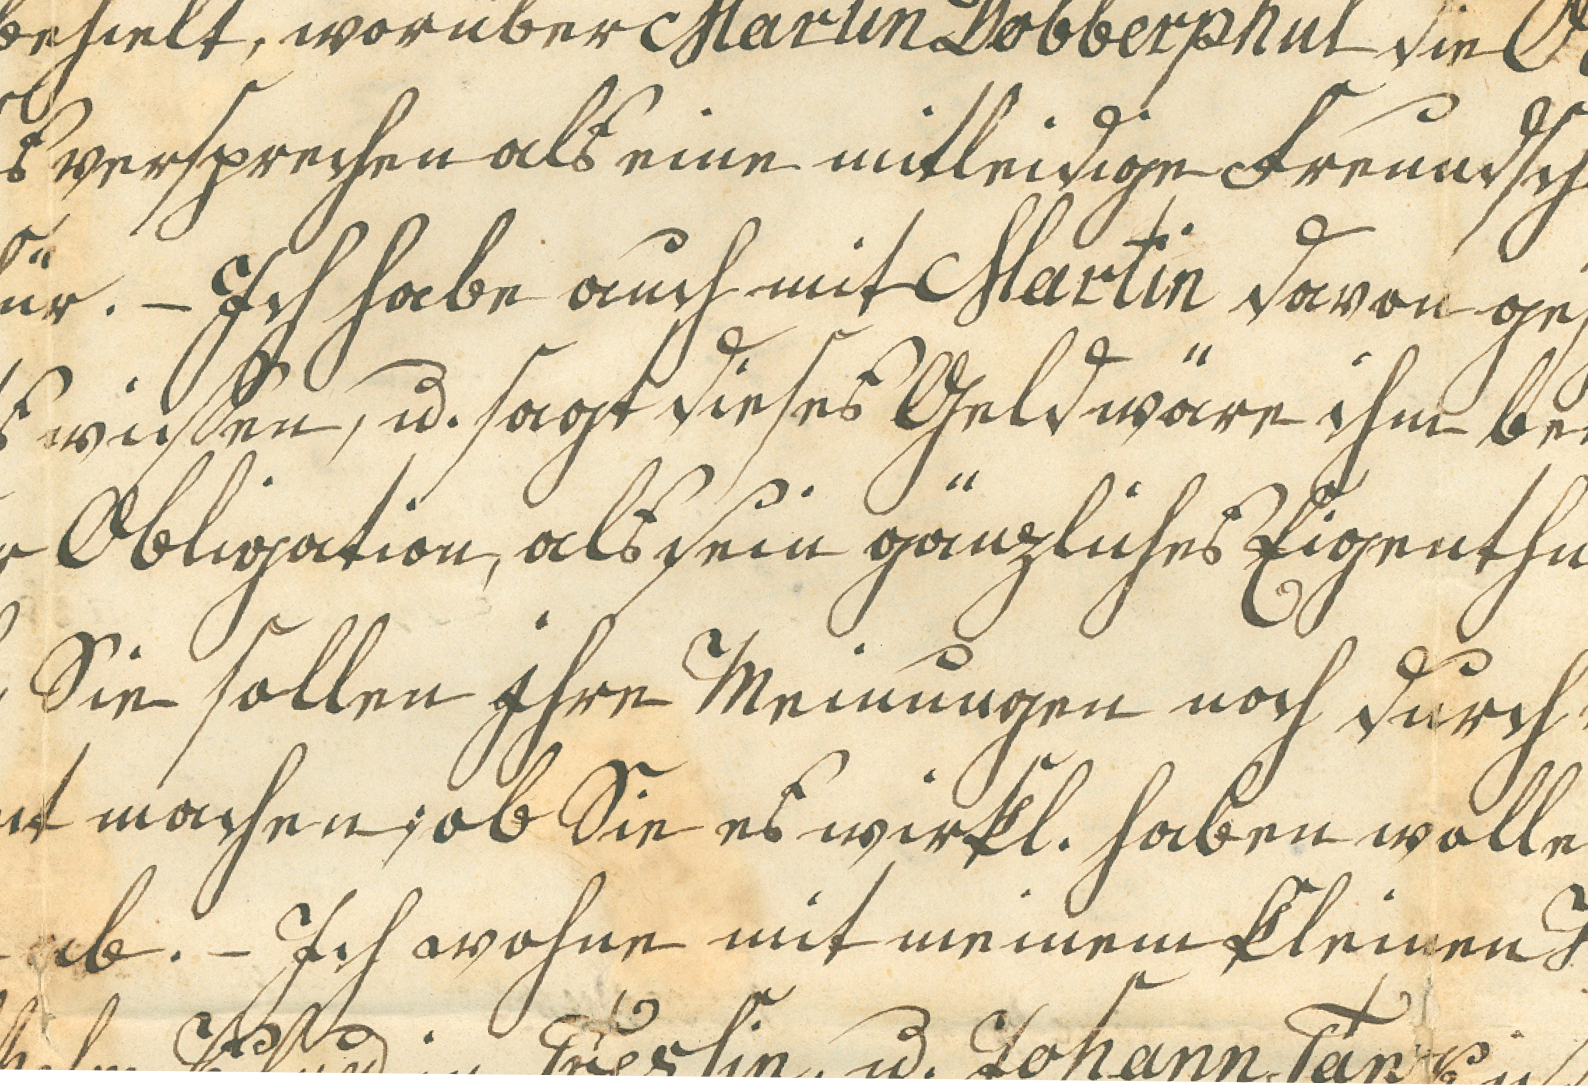 behielt, worüber Martin Dobberphul die
versprechen als eine mitleidige Freundsch
für. – Ich habe auch mit Martin davon ges
wissen, u. sagt dieses Geld wäre ihm bei
Obligation, als sein gänzliches Eigenthu
Sie sollen ihre Meinungen noch durch
nt machen, ob Sie es wirkl. haben wolle
ab. – Ich wohne mit meinem kleinen
in u. Johann